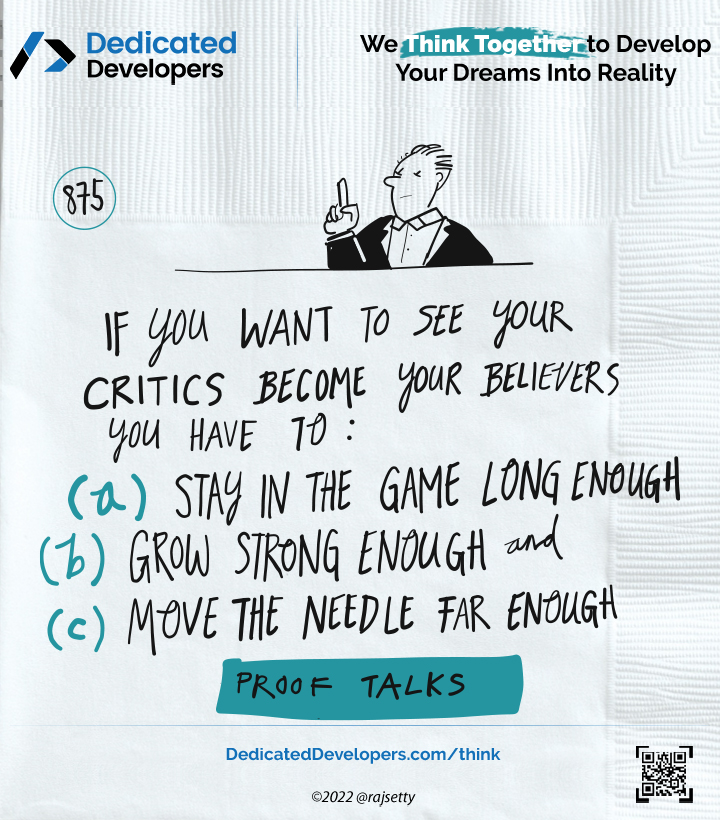 Dedicated
Developers
We Think Together to Develop
Your Dreams Into Reality
875
IF YOU WANT TO SEE YOUR
CRITICS BECOME YOUR BELIEVERS
YOU HAVE TO :
(a) STAY IN THE GAME LONG ENOUGH
(b) GROW STRONG ENOUGH and
(c) MOVE THE NEEDLE FAR ENOUGH
PROOF TALKS
DedicatedDevelopers.com/think
©2022 @rajsetty